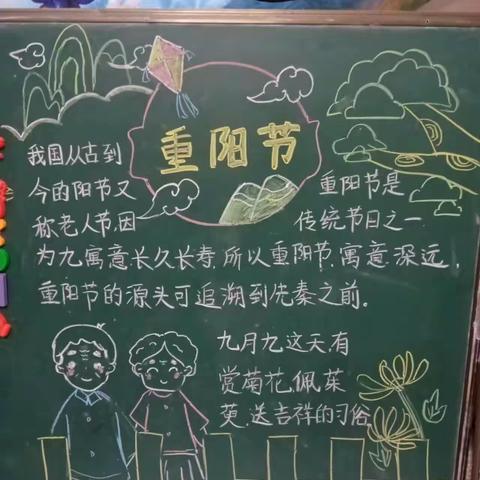 重阳节
我国从古到
今的阳节又
称老人节,因
重阳节是
传统节日之一
为九寓意长久长寿,所以重阳节,寓意深远,
重阳节的源头可追溯到先秦之前。
九月九这天,有
赏菊花,佩茱
萸,送吉祥的习俗